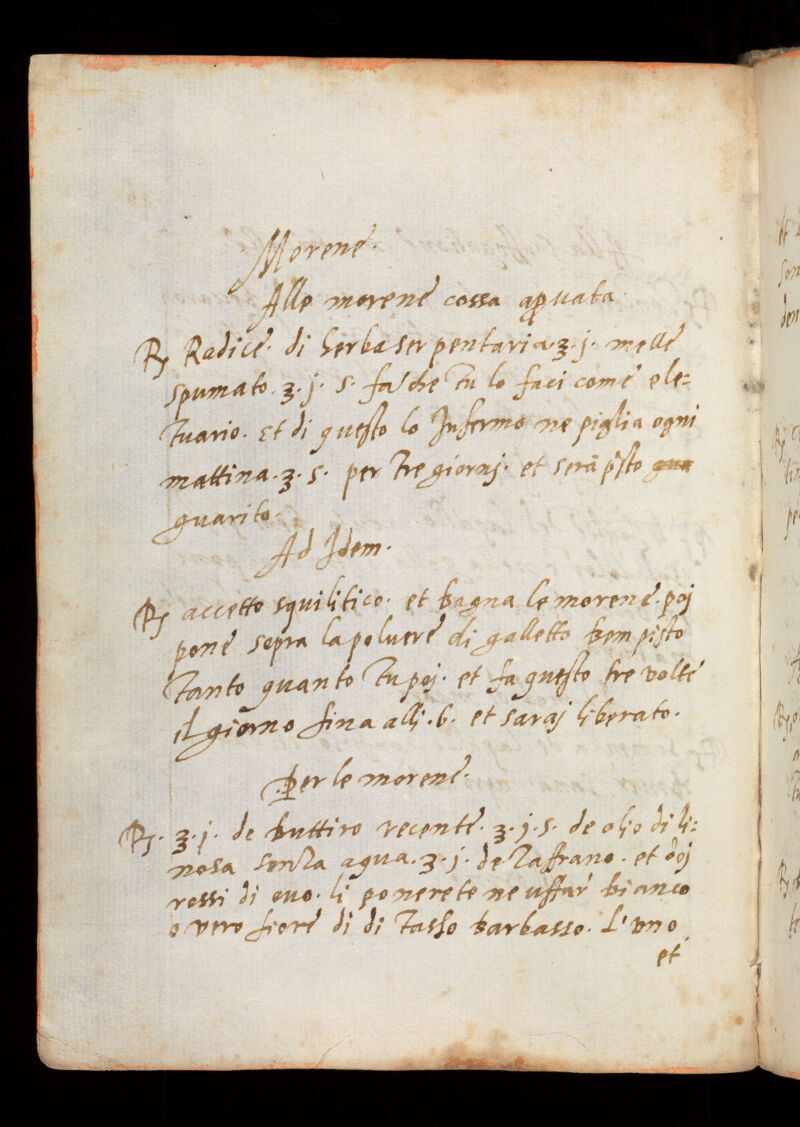 Morene.
Alle morene cossa apuata
Rx Radice. di herba serpentaria. ʒ. j. melle
spumato. ʒ. j. s. fa che tu lo faci come ele=
tuario. Et di questo lo Infermo ne piglia ogni
mattina. ʒ. s. per tre giornj. et serà psto gua
guarito.
Ad Idem.
Rx accetto squilitico. et bagna le morene. poj
pone sopra la poluere di galletto ben pisto
tanto quanto tu poj. et fa questo tre volte
il giorno fina alli. 6. et saraj liberato.
Per le morene.
Rx. ʒ. j. de buttiro recente. ʒ. j. s. de olio di li=
nosa senza aqua. ʒ. j. de zaffrano. et doj
rossi di ouo. li ponerete bianco
o vero fiore di di tasso barbasso. L'uno
et